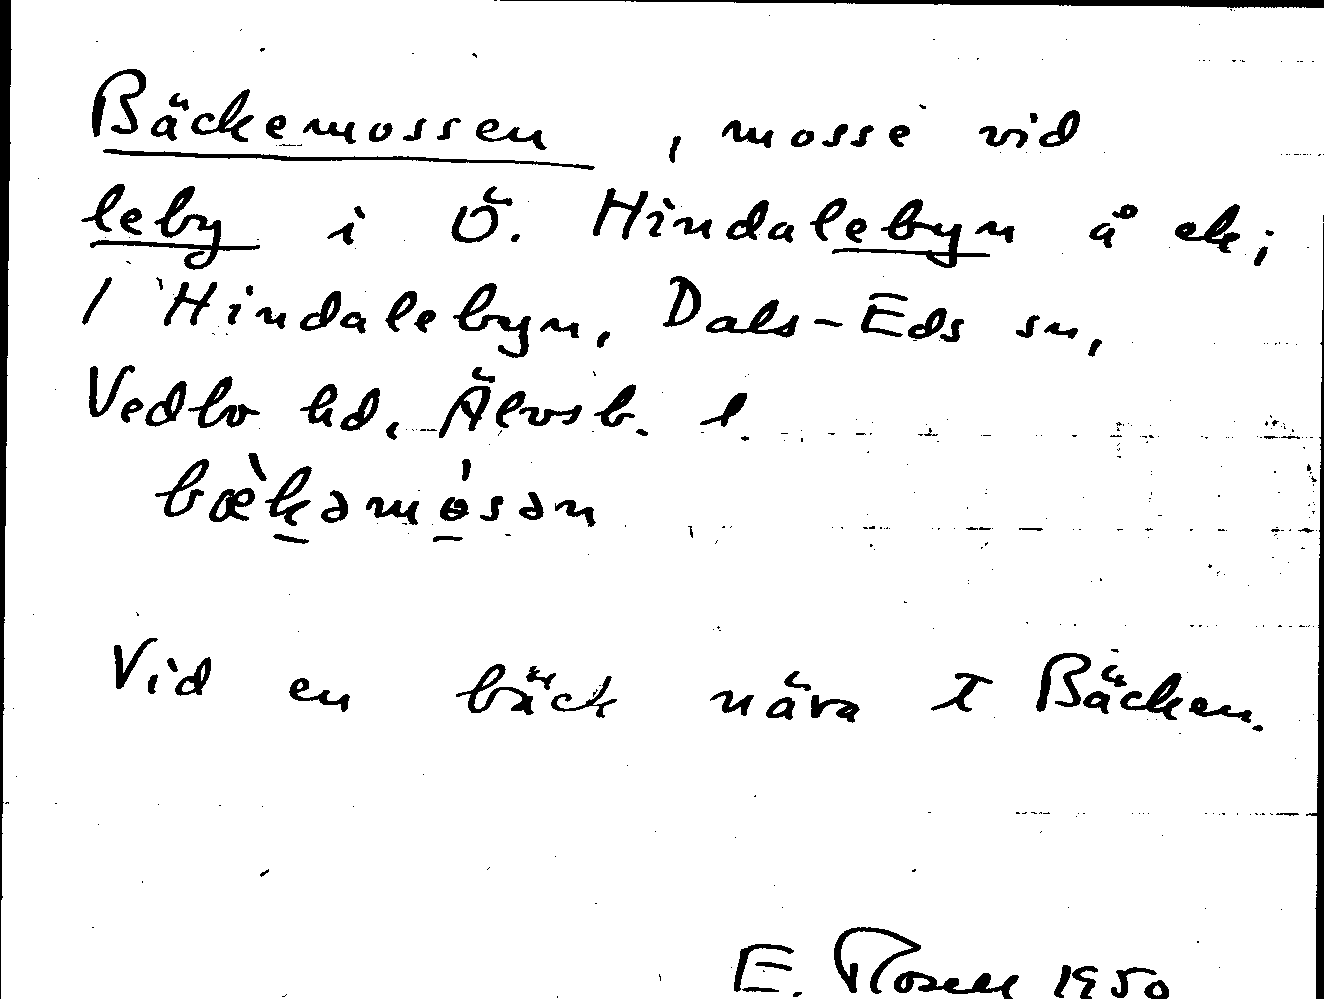 Bäckemossen, mosse vid
leby i Ö. Hindalebyn å ek;
/ Hindalebyn, Dals-Eds sn,
Vedbo hd, Älvsb. l.
bæ̀kəmósən
Vid en bäck nära t Bäcken.
E. Rosell 1950